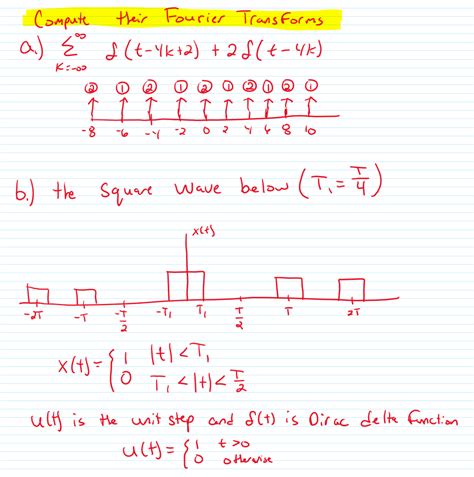 Compute their Fourier Transforms
a.) ∞ Σ K=-∞ δ(t-4k+2) + 2δ(t-4k)
② ① ② ① ② ① ② ① ② ①
-8 -6 -4 -2 0 2 4 6 8 10
b.) the square wave below (T₁ = T/4)
x(t)
-2T -T -T/2 -T₁ T₁ T/2 T 2T
x(t) = { 1 |t| < T₁
0 T₁ < |t| < T/2
u(t) is the unit step and δ(t) is Dirac delta function
u(t) = { 1 t > 0
0 otherwise